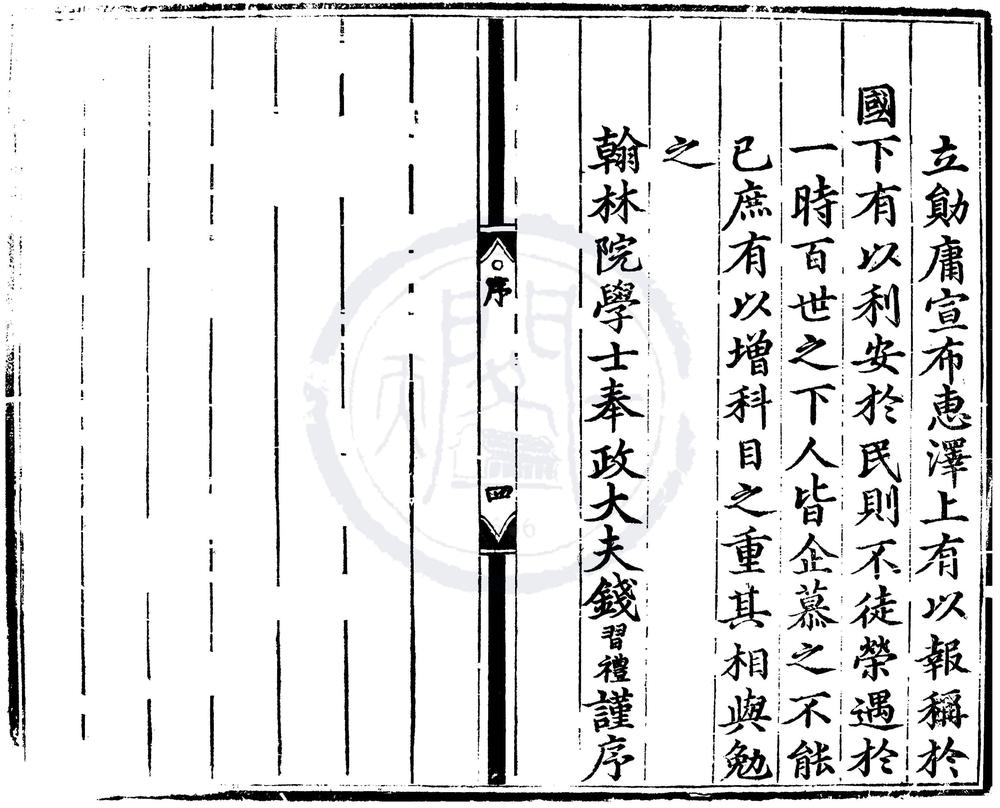 立勛庸宣布惠澤上有以報稱於
國下有以利安於民則不徒榮遇於
一時百世之下人皆企慕之不能
已庶有以增科目之重其相與勉
之
翰林院學士奉政大夫錢習禮謹序
序
四